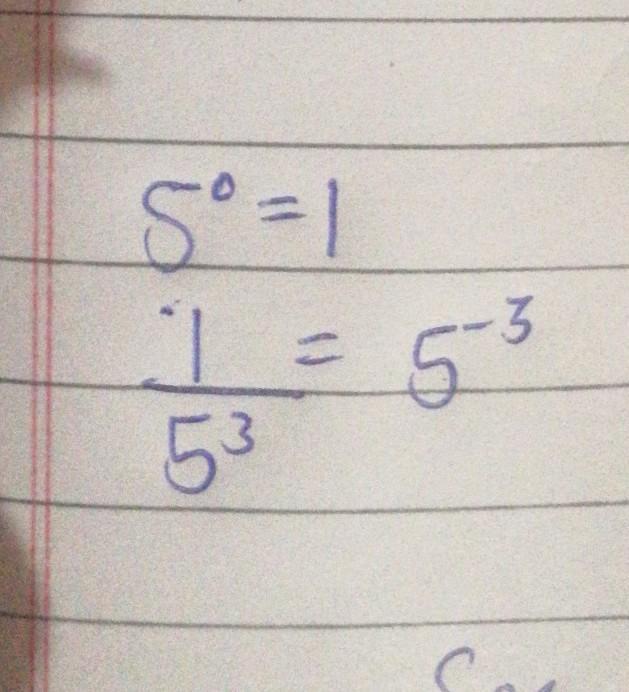 5⁰ = 1
1/5³ = 5⁻³